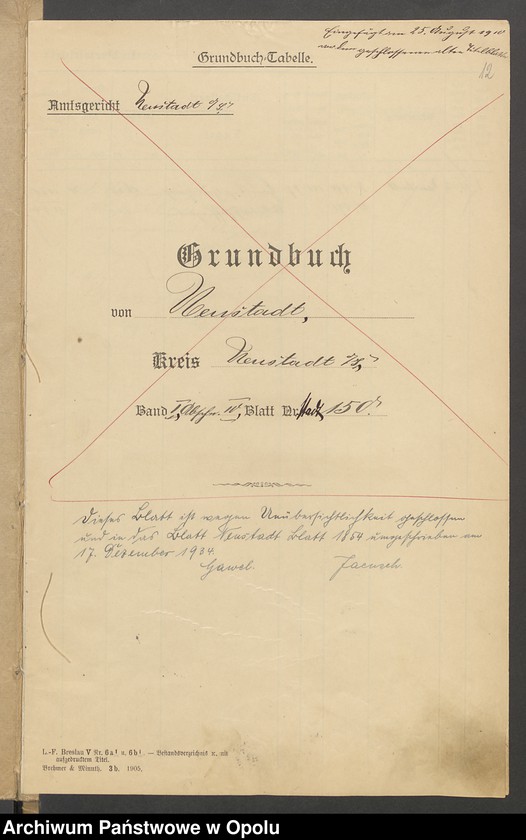 Eingefügt am 25. August 1910
geschlossenen alten Titelblatte
12
Grundbuch-Tabelle.
Amtsgericht Neustadt O/S.
Grundbuch
von Neustadt,
Kreis Neustadt O/S.,
Band I, Abschr. IV, Blatt Nr. 150.
Dieses Blatt ist wegen Unübersichtlichkeit geschlossen
und in das Blatt Neustadt Blatt 1854 umgeschrieben am
17. Dezember 1934.
Gawel. Jaensch
L.-F. Breslau V Nr. 6a¹ u. 6b¹. — Bestandsverzeichnis u. mit
aufgedrucktem Titel.
Brehmer & Minuth. 3b. 1905.
Archiwum Państwowe w Opolu